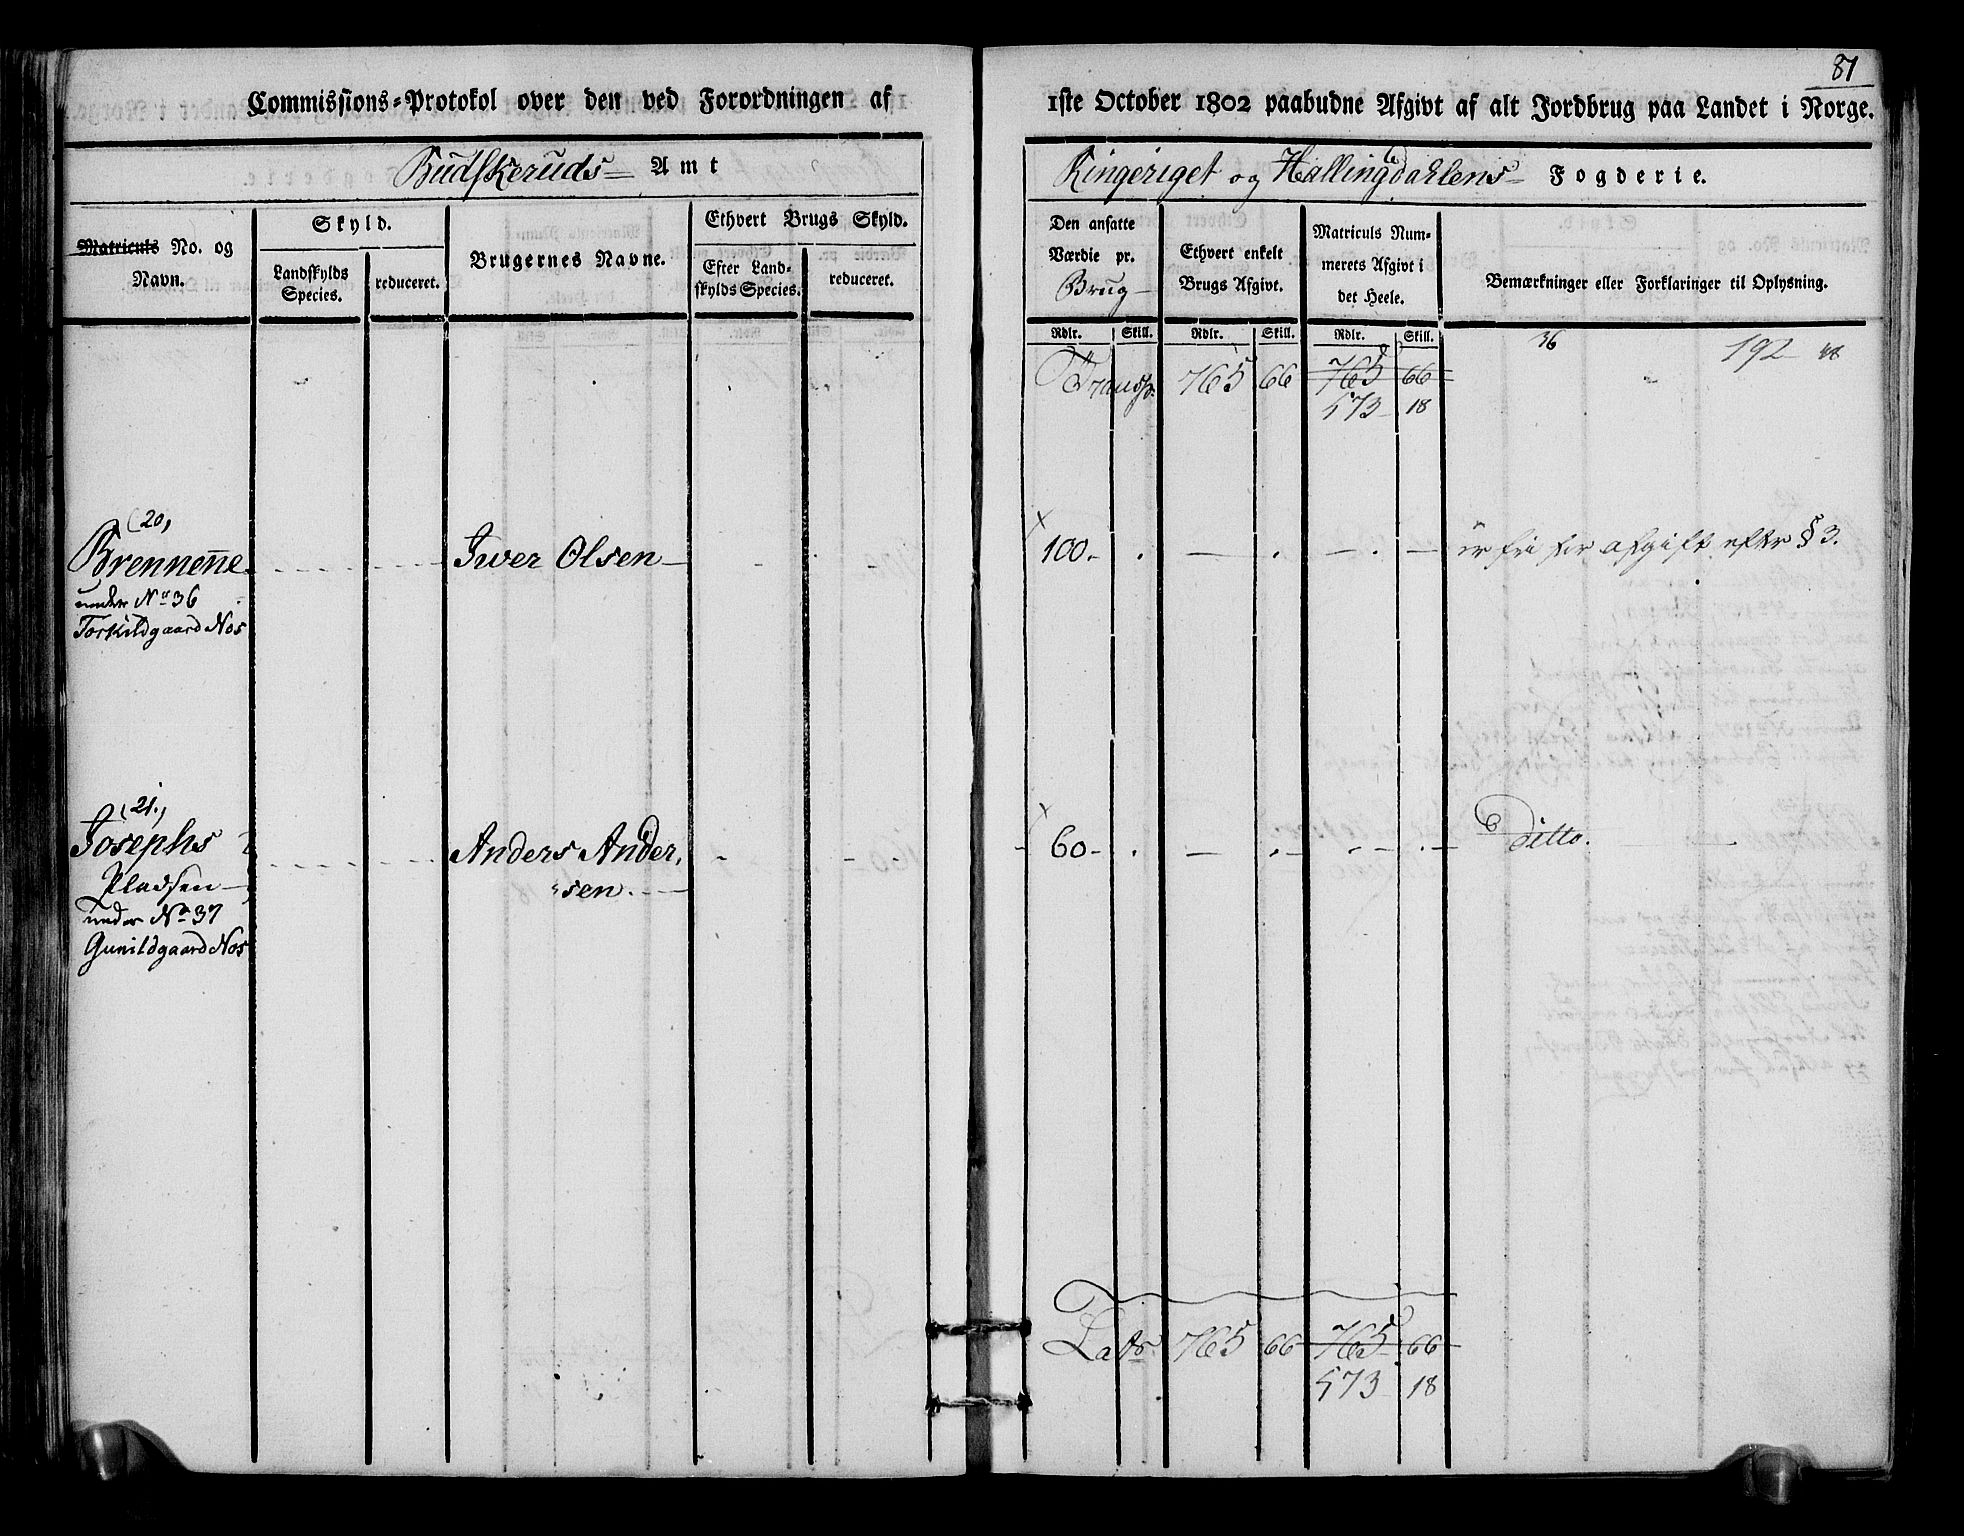 81
Commissions-Protokol over den ved Forordningen af 1ste October 1802 paabudne Afgivt af alt Jordbrug paa Landet i Norge.
Budskeruds Amt
Ringeriget og Hallingdahlens Fogderie.
Matriculs No. og Navn.
Skyld.
Landskylds Species.
reduceret.
Brugernes Navne.
Ethvert Brugs Skyld.
Efter Landskylds Species.
reduceret.
Den ansatte Værdie pr. Brug
Ethvert enkelt Brugs Afgivt.
Matriculs Nummerets Afgivt i det Heele.
Bemærkninger eller Forklaringer til Oplysning.
Rdlr. Skill. Rdlr. Skill. Rdlr. Skill.
36 192 48
Transp. 765 66 765 66
573 18
(20)
Brennene Iver Olsen 100. er fri for afgift efter § 3.
under No 36
Torkildgaard Nos
(21.)
Josephs Anders Ander- 60 Ditto.
Pladsen sen.
under No 37
Gunildgaard Nos
Lats 765 66 765 66
573 18